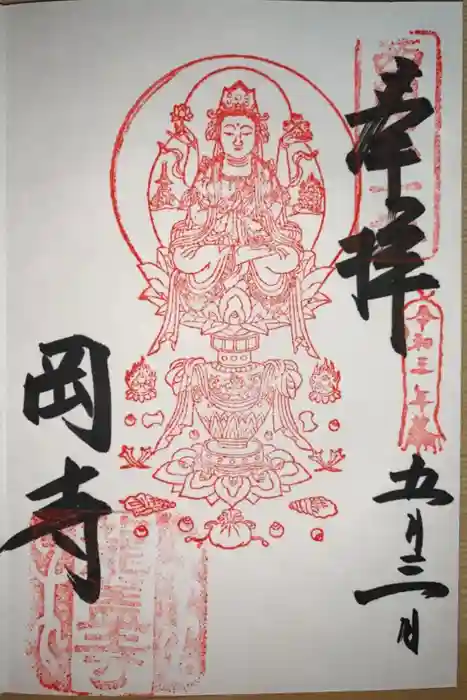 奉拝
令和三年
五月三日
岡寺